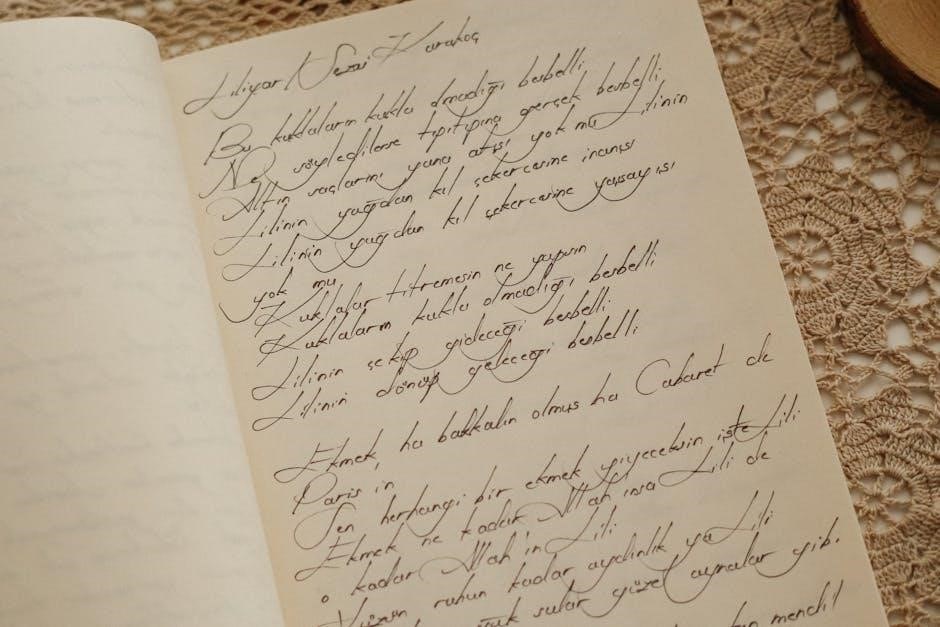 Liliyar \ Sezai Karakoç
Bu kuklaların kukla olmadığı besbelli
Ne söyledilerse tıpıtıpına gerçek besbelli
Altın saçlarını yana atışı yok mu Lilinin
Lilinin yağdan kıl çekercesine inanışı
Lilinin yağdan kıl çekercesine yaşayışı
yok mu
Kuklalar titremesin ne yapsın
Kuklaların kukla olmadığı besbelli
Lilinin çekip gideceği besbelli
Lilinin dönüp geleceği besbelli
Ekmek, ha bakkalın olmuş ha Cabaret de
Paris in
Sen herhangi bir ekmek yiyeceksin işte Lili
Ekmek ne kadar Allah'ınsa Lili de
o kadar Allah'ın Lili
Yüzün ruhun kadar aydınlık ya Lili
sular güzel aynalar gibi.
mendil